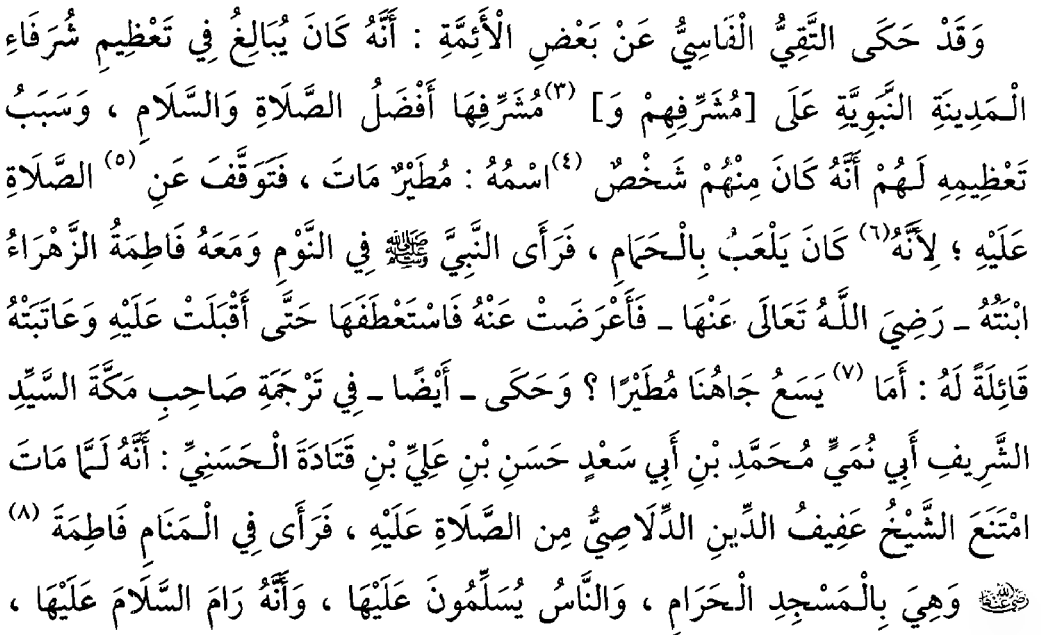 وَقَدْ حَكَى التَّقِيُّ الْفَاسِيُّ عَنْ بَعْضِ الْأَئِمَّةِ : أَنَّهُ كَانَ يُبَالِغُ فِي تَعْظِيمِ شُرَفَاءِ
الْمَدِينَةِ النَّبَوِيَّةِ عَلَى [مُشَرِّفِهِمْ وَ] (٣) مُشَرِّفِهَا أَفْضَلُ الصَّلَاةِ وَالسَّلَامِ ، وَسَبَبُ
تَعْظِيمِهِ لَهُمْ أَنَّهُ كَانَ مِنْهُمْ شَخْصٌ (٤) اسْمُهُ : مُطَيْرٌ مَاتَ ، فَتَوَقَّفَ عَنِ (٥) الصَّلَاةِ
عَلَيْهِ ؛ لِأَنَّهُ (٦) كَانَ يَلْعَبُ بِالْحَمَامِ ، فَرَأَى النَّبِيَّ ﷺ فِي النَّوْمِ وَمَعَهُ فَاطِمَةُ الزَّهْرَاءُ
ابْنَتُهُ ـ رَضِيَ اللَّهُ تَعَالَى عَنْهَا ـ فَأَعْرَضَتْ عَنْهُ فَاسْتَعْطَفَهَا حَتَّى أَقْبَلَتْ عَلَيْهِ وَعَاتَبَتْهُ
قَائِلَةً لَهُ : أَمَا (٧) يَسَعُ جَاهُنَا مُطَيْرًا ؟ وَحَكَى ـ أَيْضًا ـ فِي تَرْجَمَةِ صَاحِبِ مَكَّةَ السَّيِّدِ
الشَّرِيفِ أَبِي نُمَيٍّ مُحَمَّدِ بْنِ أَبِي سَعْدٍ حَسَنِ بْنِ عَلِيِّ بْنِ قَتَادَةَ الْحَسَنِيِّ : أَنَّهُ لَمَّا مَاتَ
امْتَنَعَ الشَّيْخُ عَفِيفُ الدِّينِ الدِّلَاصِيُّ مِن الصَّلَاةِ عَلَيْهِ ، فَرَأَى فِي الْمَنَامِ فَاطِمَةَ (٨)
رضي الله عنها وَهِيَ بِالْمَسْجِدِ الْحَرَامِ ، وَالنَّاسُ يُسَلِّمُونَ عَلَيْهَا ، وَأَنَّهُ رَامَ السَّلَامَ عَلَيْهَا ،